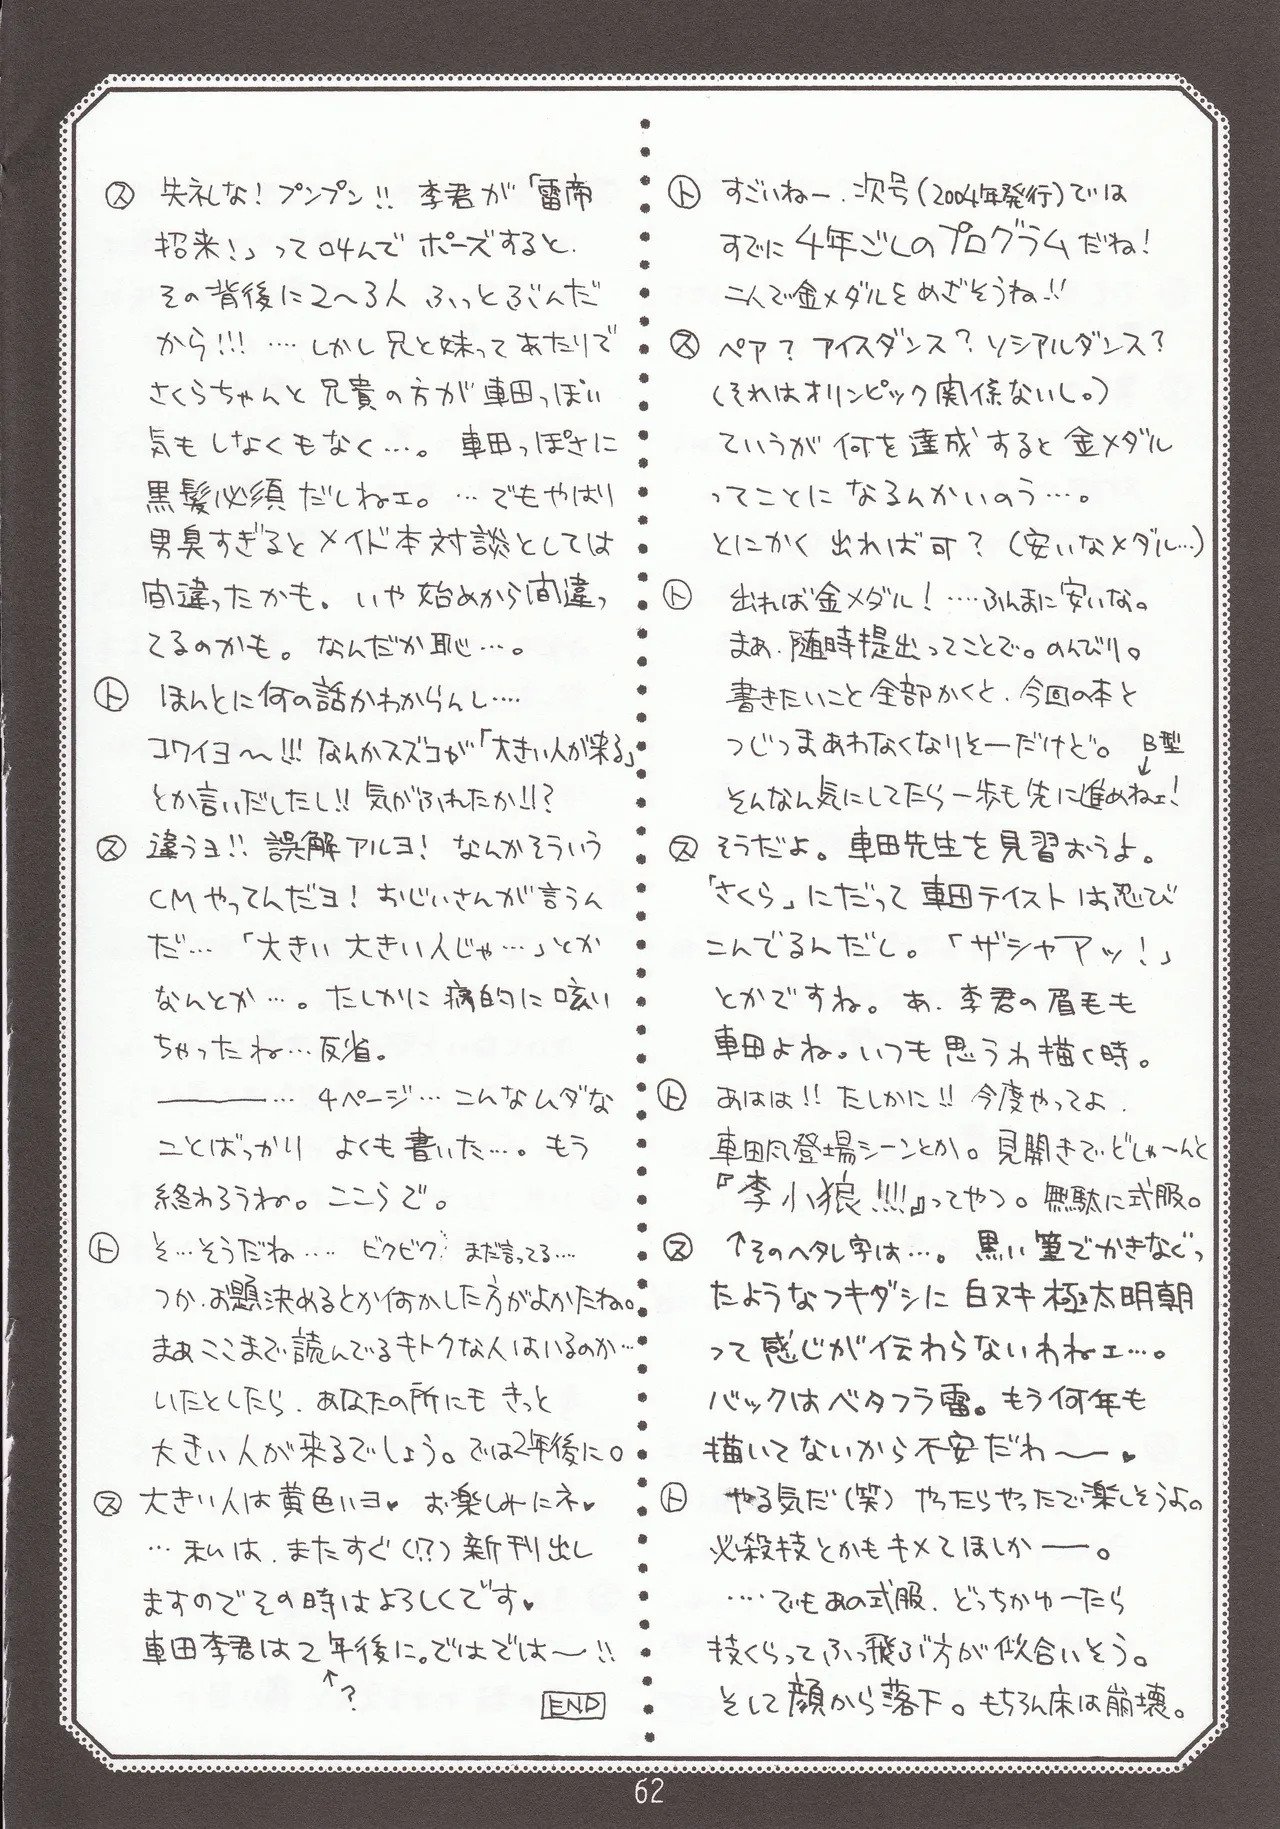 ト すごいねー、次号(2004年発行)では
すでに4年ごしのプログラムだね!
二人で金メダルをめざそうね!!
ス ペア? アイスダンス? ソシアルダンス?
(それはオリンピック関係ないし。)
ていうが何を達成すると金メダル
ってことになるんかいのう…。
とにかく出れば可? (安いなメダル…)
ト 出れば金メダル! ‥‥ふんまに安いな。
まぁ、随時提出ってことで。のんびり。
書きたいこと全部かくと、今回の本と
つじつまあわなくなりそーだけど。 B型
そんなん気にしてたら一歩も先に進めねェ!
ス そうだよ。車田先生を見習おうよ。
「さくら」にだって車田テイストは忍び
こんでるんだし。「ザシャアッ!」
とかですね。あ、李君の眉毛も
車田よね。いつも思うわ描く時。
ト あはは!! たしかに!! 今度やってよ、
車田風登場シーンとか。見開きでどしゃ〜んと
『李小狼!!!!』ってやつ。無駄に式服。
ス ↑そのヘタレ字は…。黒い筆でかきなぐっ
たようなフキダシに白ヌキ極太明朝
って感じが伝わらないわねェ…。
バックはベタフラ雷。もう何年も
描いてないから不安だわ〜〜♥
ト やる気だ(笑) やったらやったで楽しそうよ。
必殺技とかもキメてほしか――。
‥‥でもあの式服、どっちかゆーたら
技くらってふっ飛ぶ方が似合いそう。
そして顔から落下。もちろん床は崩壊。
ス 失礼な! プンプン!! 李君が「雷帝
招来!」って叫んでポーズすると、
その背後に2〜3人ふっとぶんだ
から!!! ‥‥しかし兄と妹ってあたりで
さくらちゃんと兄貴の方が車田っぽい
気もしなくもなく…。車田っぽさに
黒髪必須だしねェ。…でもやはり
男臭すぎるとメイド本対談としては
間違ったかも。いや始めから間違っ
てるのかも。なんだか恥…。
ト ほんとに何の話かわからんし‥‥
コワイヨ〜!!! なんかスズコが「大きい人が来る」
とか言いだしたし!! 気がふれたか!!?
ス 違うヨ!! 誤解アルヨ! なんかそういう
CMやってんだヨ! おじいさんが言うん
だ…「大きい大きい人じゃ…」とか
なんとか…。たしかに病的に呟い
ちゃったね…反省。
――… 4ページ… こんなムダな
ことばっかりよくも書いた…。もう
終わろうね。ここらで。
ト そ…そうだね‥‥ ビクビク まだ言ってる‥‥
つか、お題決めるとか何かした方がよかたね。
まぁここまで読んでるキトクな人はいるのか…
いたとしたら、あなたの所にもきっと
大きい人が来るでしょう。では2年後に。
ス 大きい人は黄色いヨ♥ お楽しみにネ♥
…私は、またすぐ(!?)新刊出し
ますのでその時はよろしくです♥
車田李君は2年後に。ではでは〜!!
↑?
END
62